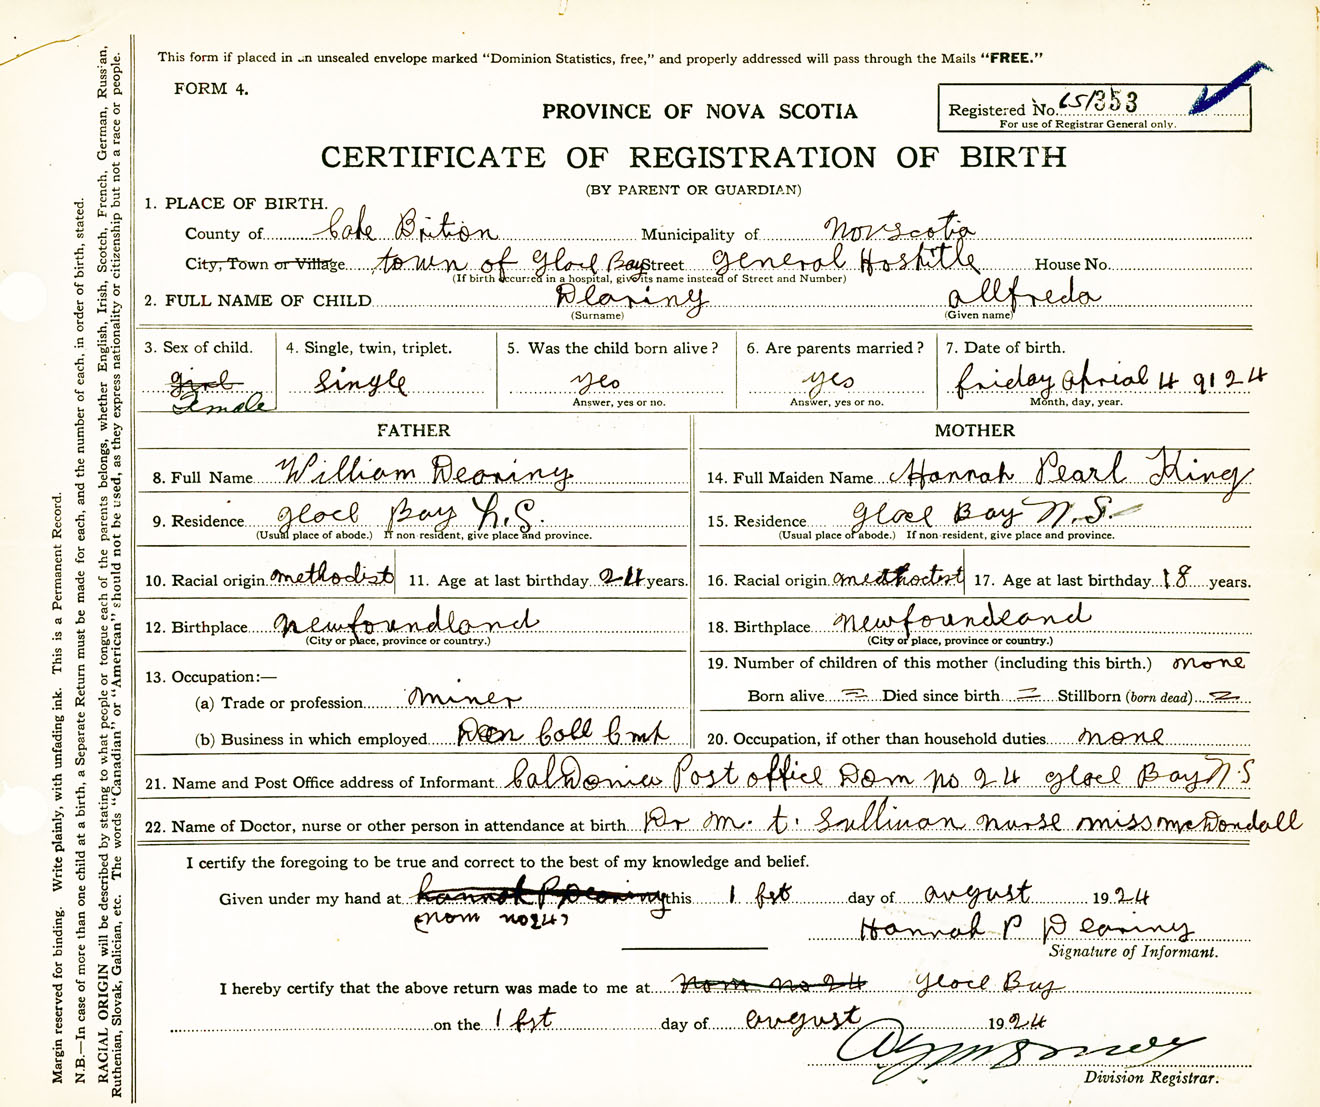 This form if placed in an unsealed envelope marked "Dominion Statistics, free," and properly addressed will pass through the Mails "FREE."
FORM 4.
PROVINCE OF NOVA SCOTIA
Registered No. 151353
For use of Registrar General only.
CERTIFICATE OF REGISTRATION OF BIRTH
(BY PARENT OR GUARDIAN)
1. PLACE OF BIRTH.
County of Cape Brition Municipality of Novscotia
City, Town or Village town of Glace Bay Street General Hospitle House No.
(If birth occurred in a hospital, give its name instead of Street and Number)
2. FULL NAME OF CHILD Dearing allfreda
(Surname) (Given name)
3. Sex of child. 4. Single, twin, triplet. 5. Was the child born alive? 6. Are parents married? 7. Date of birth.
girl Female single yes yes friday aprial 4 9124
Answer, yes or no. Answer, yes or no. Month, day, year.
FATHER MOTHER
8. Full Name William Dearing 14. Full Maiden Name Hannah Pearl King
9. Residence Glace Bay N.S. 15. Residence Glace Bay N.S.
(Usual place of abode.) If non-resident, give place and province. (Usual place of abode.) If non-resident, give place and province.
10. Racial origin methodist 11. Age at last birthday 24 years. 16. Racial origin 17. Age at last birthday 18 years.
12. Birthplace newfoundland 18. Birthplace newfoundland
(City or place, province or country.) (City or place, province or country.)
13. Occupation:— 19. Number of children of this mother (including this birth.) none
(a) Trade or profession miner Born alive Died since birth Stillborn (born dead)
(b) Business in which employed 20. Occupation, if other than household duties none
21. Name and Post Office address of Informant Caldonia Post office Dom no 24 glace Bay N.S
22. Name of Doctor, nurse or other person in attendance at birth Dr M. t. Sullivan nurse miss mcDondall
I certify the foregoing to be true and correct to the best of my knowledge and belief.
Given under my hand at hannah P Dearing this 1 fst day of august 1924
no 24
Hannah P Dearing
Signature of Informant.
I hereby certify that the above return was made to me at no 24 Glace Bay
on the 1 fst day of august 1924
Division Registrar.
Margin reserved for binding. Write plainly, with unfading ink. This is a Permanent Record.
N.B.—In case of more than one child at a birth, a Separate Return must be made for each, and the number of each, in order of birth, stated.
RACIAL ORIGIN will be described by stating to what people or tongue each of the parents belongs, whether English, Irish, Scotch, French, German, Russian,
Ruthenian, Slovak, Galician, etc. The words "Canadian" or "American" should not be used, as they express nationality or citizenship but not a race or people.